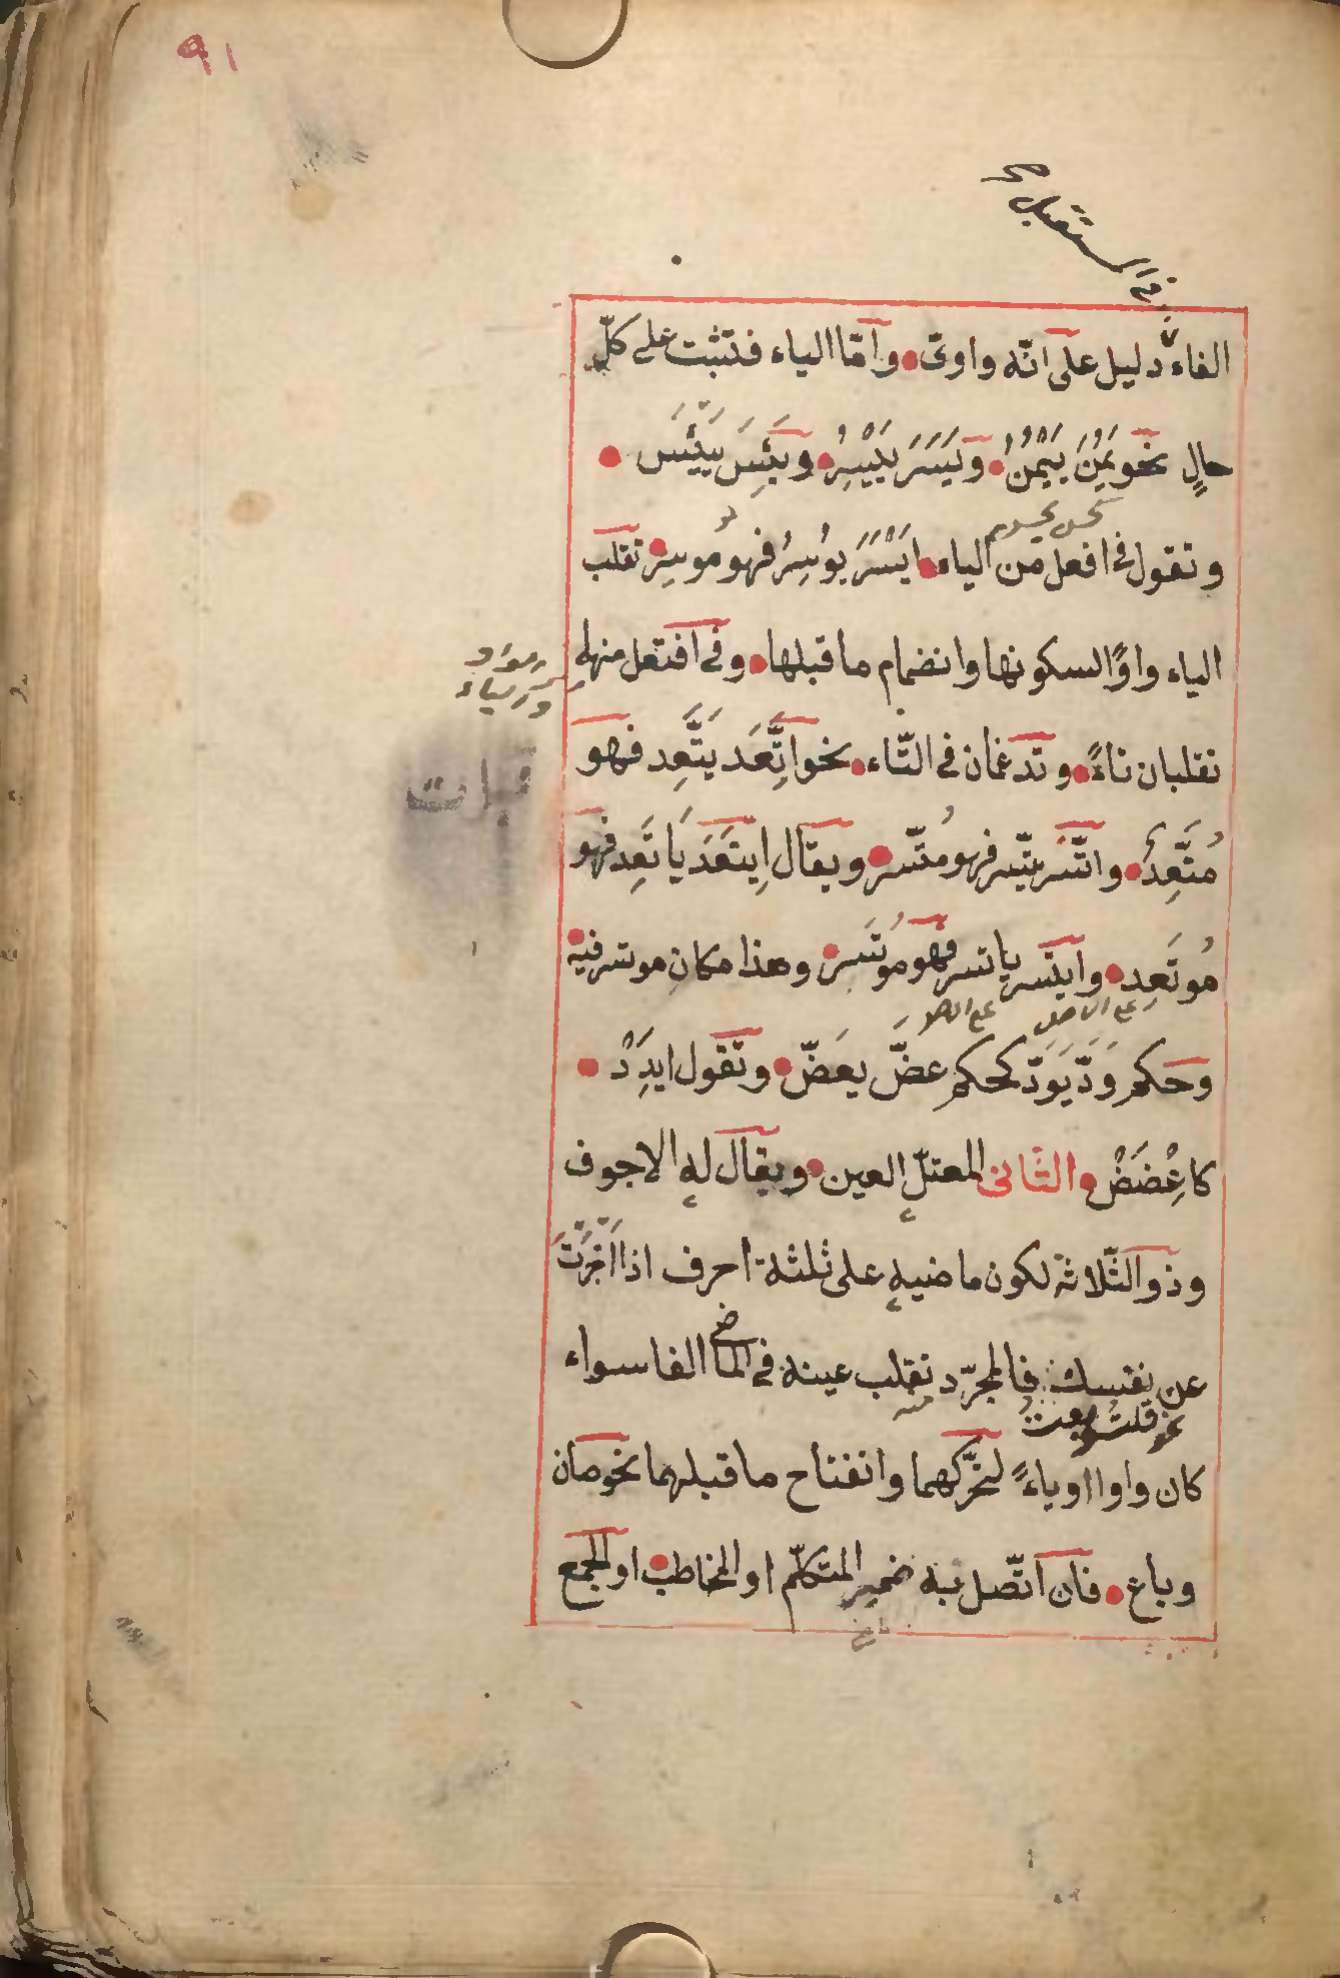 ٩١
في المستقبل صح
الفاء دليل على انّه واوىّ وأمّا الياء فتثبت على كلّ
حالٍ نحو يَمُنَ يَيْمُنُ ويَسَرَ يَيْسِرُ ويَئِسَ يَيْئَسُ
وتقول فى افعل من الياء ايْسَرَ يوُسِرُ فهو مُوسِرٌ تقلب
الياء واوًا لسكونها وانضمام ما قبلها وفى افتعل منها
تقلبان تاءً وتدغمان فى التّاء نحو اتَّعَدَ يَتَّعِد فهو
مُتَّعِدٌ واتَّسَر يتّسر فهو مُتّسر ويقال اِيتَعَدَ يَاتَعِد فهو
مُوتَعِد وايتَسر ياتسر فهو موُتَسر وهذا مكان موتسر فيه
وحكم وَدَّ يَوَدّ كحكم عضَّ يعَضّ وتقول ايدَدْ
كاعْضَضْ الثّانى المعتلّ العين ويقال له الاجوف
وذو الثّلاثة لكون ماضيه على ثلثة احرف اذا اخبَرْتَ
عن نفسك فالمجرّد تقلب عينه فى الماضى الفا سواء
نحو قلت وبعت
كان واوا اوياءً لتحرّكهما وانفتاح ما قبلهما نحو صان
وباع فان اتّصل به ضمير المتكلّم او المخاطب او الجمع